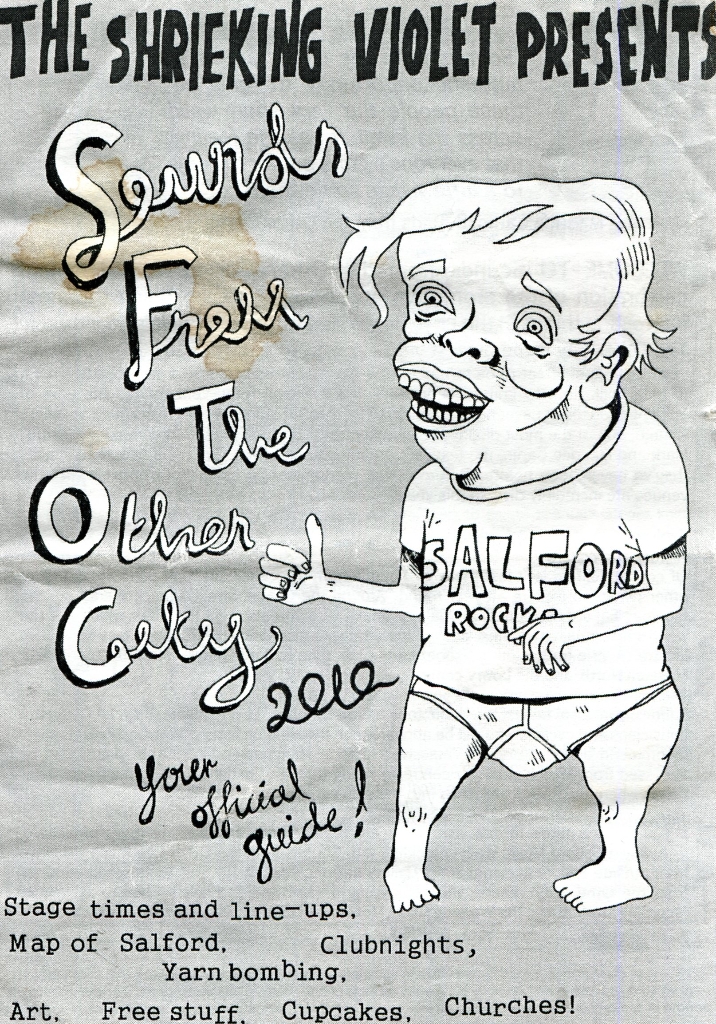 THE SHRIEKING VIOLET PRESENTS
Sounds
From
The
Other
City
2010
your
official
guide!
SALFORD
ROCKS
Stage times and line-ups,
Map of Salford, Clubnights,
Yarn bombing,
Art, Free stuff, Cupcakes, Churches!